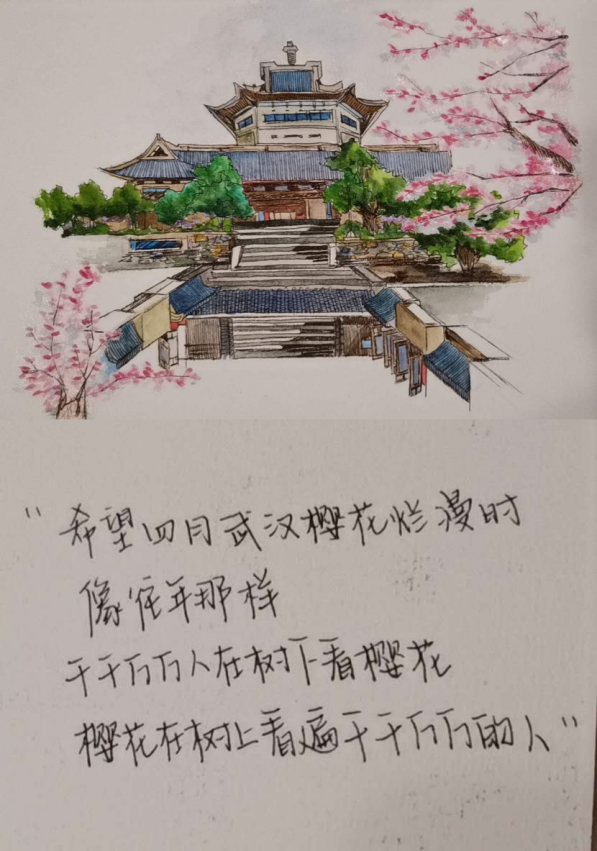 “希望四月武汉樱花烂漫时
像往年那样
千千万万人在树下看樱花
樱花在树上看遍千千万万的人”